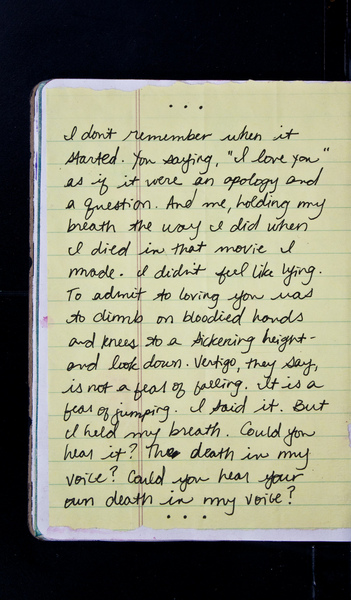 ...
I dont remember when it
started. You saying, "I love you"
as if it were an apology and
a question. And me, holding my
breath the way I did when
I died in that movie I
made. I didn't feel like lying.
To admit to loving you was
to climb on bloodied hands
and knees to a sickening height-
and look down. Vertigo, they say,
is not a fear of falling. It is a
fear of jumping. I said it. But
I held my breath. Could you
hear it? The death in my
voice? Could you hear your
own death in my voice?
...